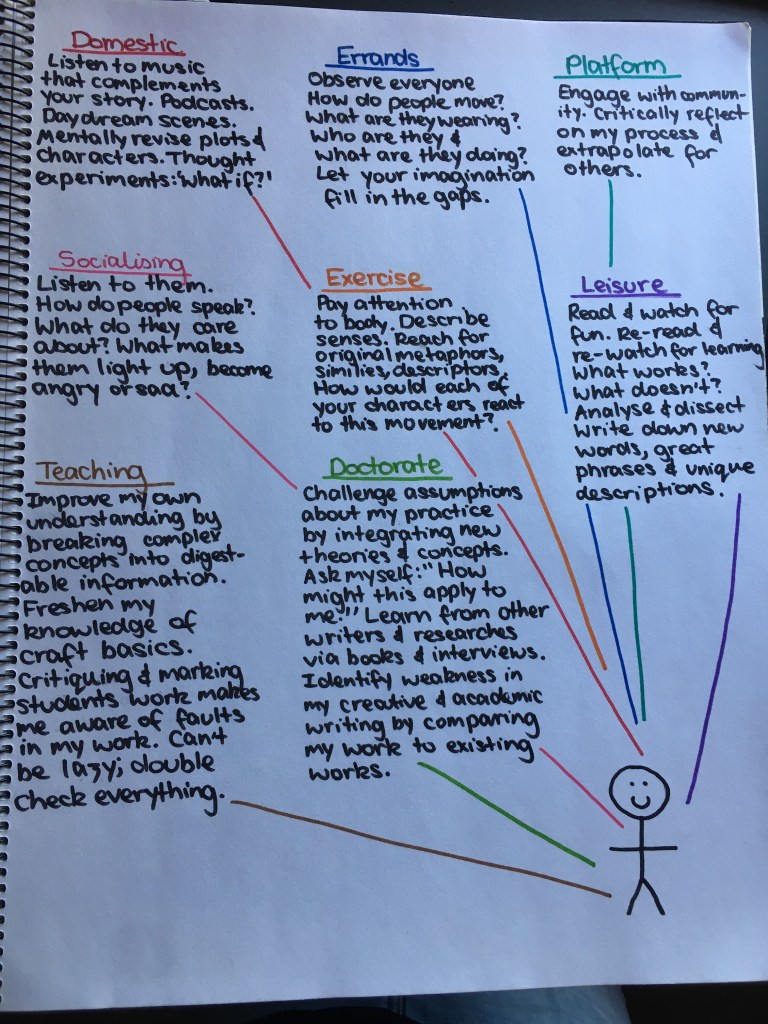 Domestic
Listen to music
that complements
your story. Podcasts.
Daydream scenes.
Mentally revise plots &
characters. Thought
experiments: 'What if?'
Errands
Observe everyone
How do people move?
What are they wearing?
Who are they &
what are they doing?
Let your imagination
fill in the gaps.
Platform
Engage with commun-
ity. Critically reflect
on my process &
extrapolate for
others.
Socialising
Listen to them.
How do people speak?
What do they care
about? What makes
them light up, become
angry or sad?
Exercise
Pay attention
to body. Describe
senses. Reach for
original metaphors,
similies, descriptors.
How would each of
your characters react
to this movement?
Leisure
Read & watch for
fun. Re-read &
re-watch for learning
What works?
What doesn't?
Analyse & dissect
Write down new
words, great
phrases & unique
descriptions.
Teaching
Improve my own
understanding by
breaking complex
concepts into digest-
able information.
Freshen my
knowledge of
craft basics.
Critiquing & marking
students work makes
me aware of faults
in my work. Can't
be lazy; double
check everything.
Doctorate
Challenge assumptions
about my practice
by integrating new
theories & concepts.
Ask myself: "How
might this apply to
me?" Learn from other
writers & researches
via books & interviews.
Identify weakness in
my creative & academic
writing by comparing
my work to existing
works.